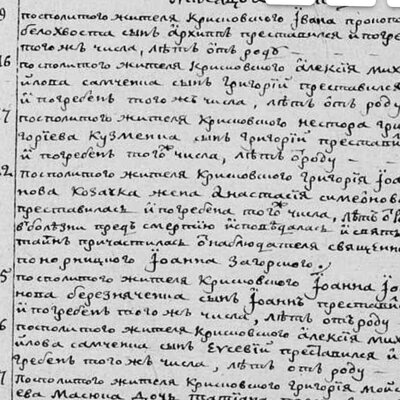 9 посполитого жителя Крисковского Їѡвана прокопо
белохвоста сынъ архиппъ преставился и погре
того жъ числа, лѣтъ ѿтъ роду —
16 посполитого жителя Крисковского алеѯїя мих
йлова самченка сынъ григорїй преставился
и погребенъ того жъ числа, лѣтъ ѿтъ роду
7 посполитого жителя Крисковского нестора гри
горїева Кузменка сынъ григорїй престави
и погребенъ того жъ числа, лѣтъ ѿроду —
22 посполитого жителя Крисковского григорїя Їоа
нова Козачка жена анастасїя симеонов
преставилась и погребена того жъ числа, лѣтъ ѿ
в болезни предъ смертїю исповѣдалась и свят
тайнъ причастилась ѿ наблюдателя священно
понорницкого Їоанна Загорского.
5 посполитого жителя Крисковского Їоанна Їо
нова березначенка сынъ Їоаннъ престави
и погребенъ того жъ числа, лѣтъ ѿтъ роду
6 посполитого жителя Крисковского алеѯїя мих
йлова самченка сынъ Еѵсевїй преставился и
гребенъ того жъ числа, лѣтъ ѿтъ роду —
7 посполитого жителя Крисковского григорїя мойс
ева Масюка дочь Татїана